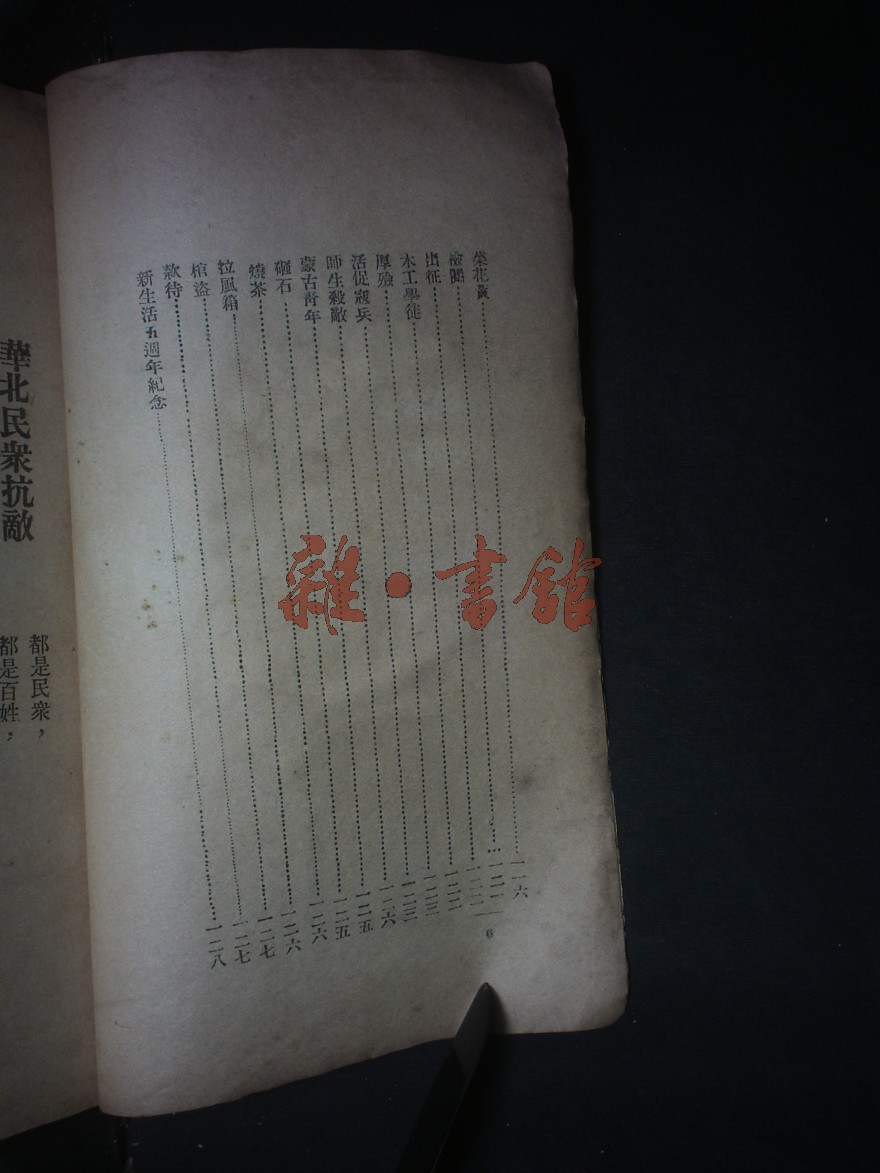 菜花黃……一一六
檢閱……一二一
出征……一二二
木工學徒……一二二
厚殮……一二三
活促寇兵……一二三
師生殺敵……一二六
蒙古青年……一二五
砸石……一二五
燒茶……一二六
拉風箱……一二六
棺盗……一二七
款待……一二七
新生活五週年紀念……一二八
6
華北民衆抗敵
都是民衆，
都是百姓，
雜·書館